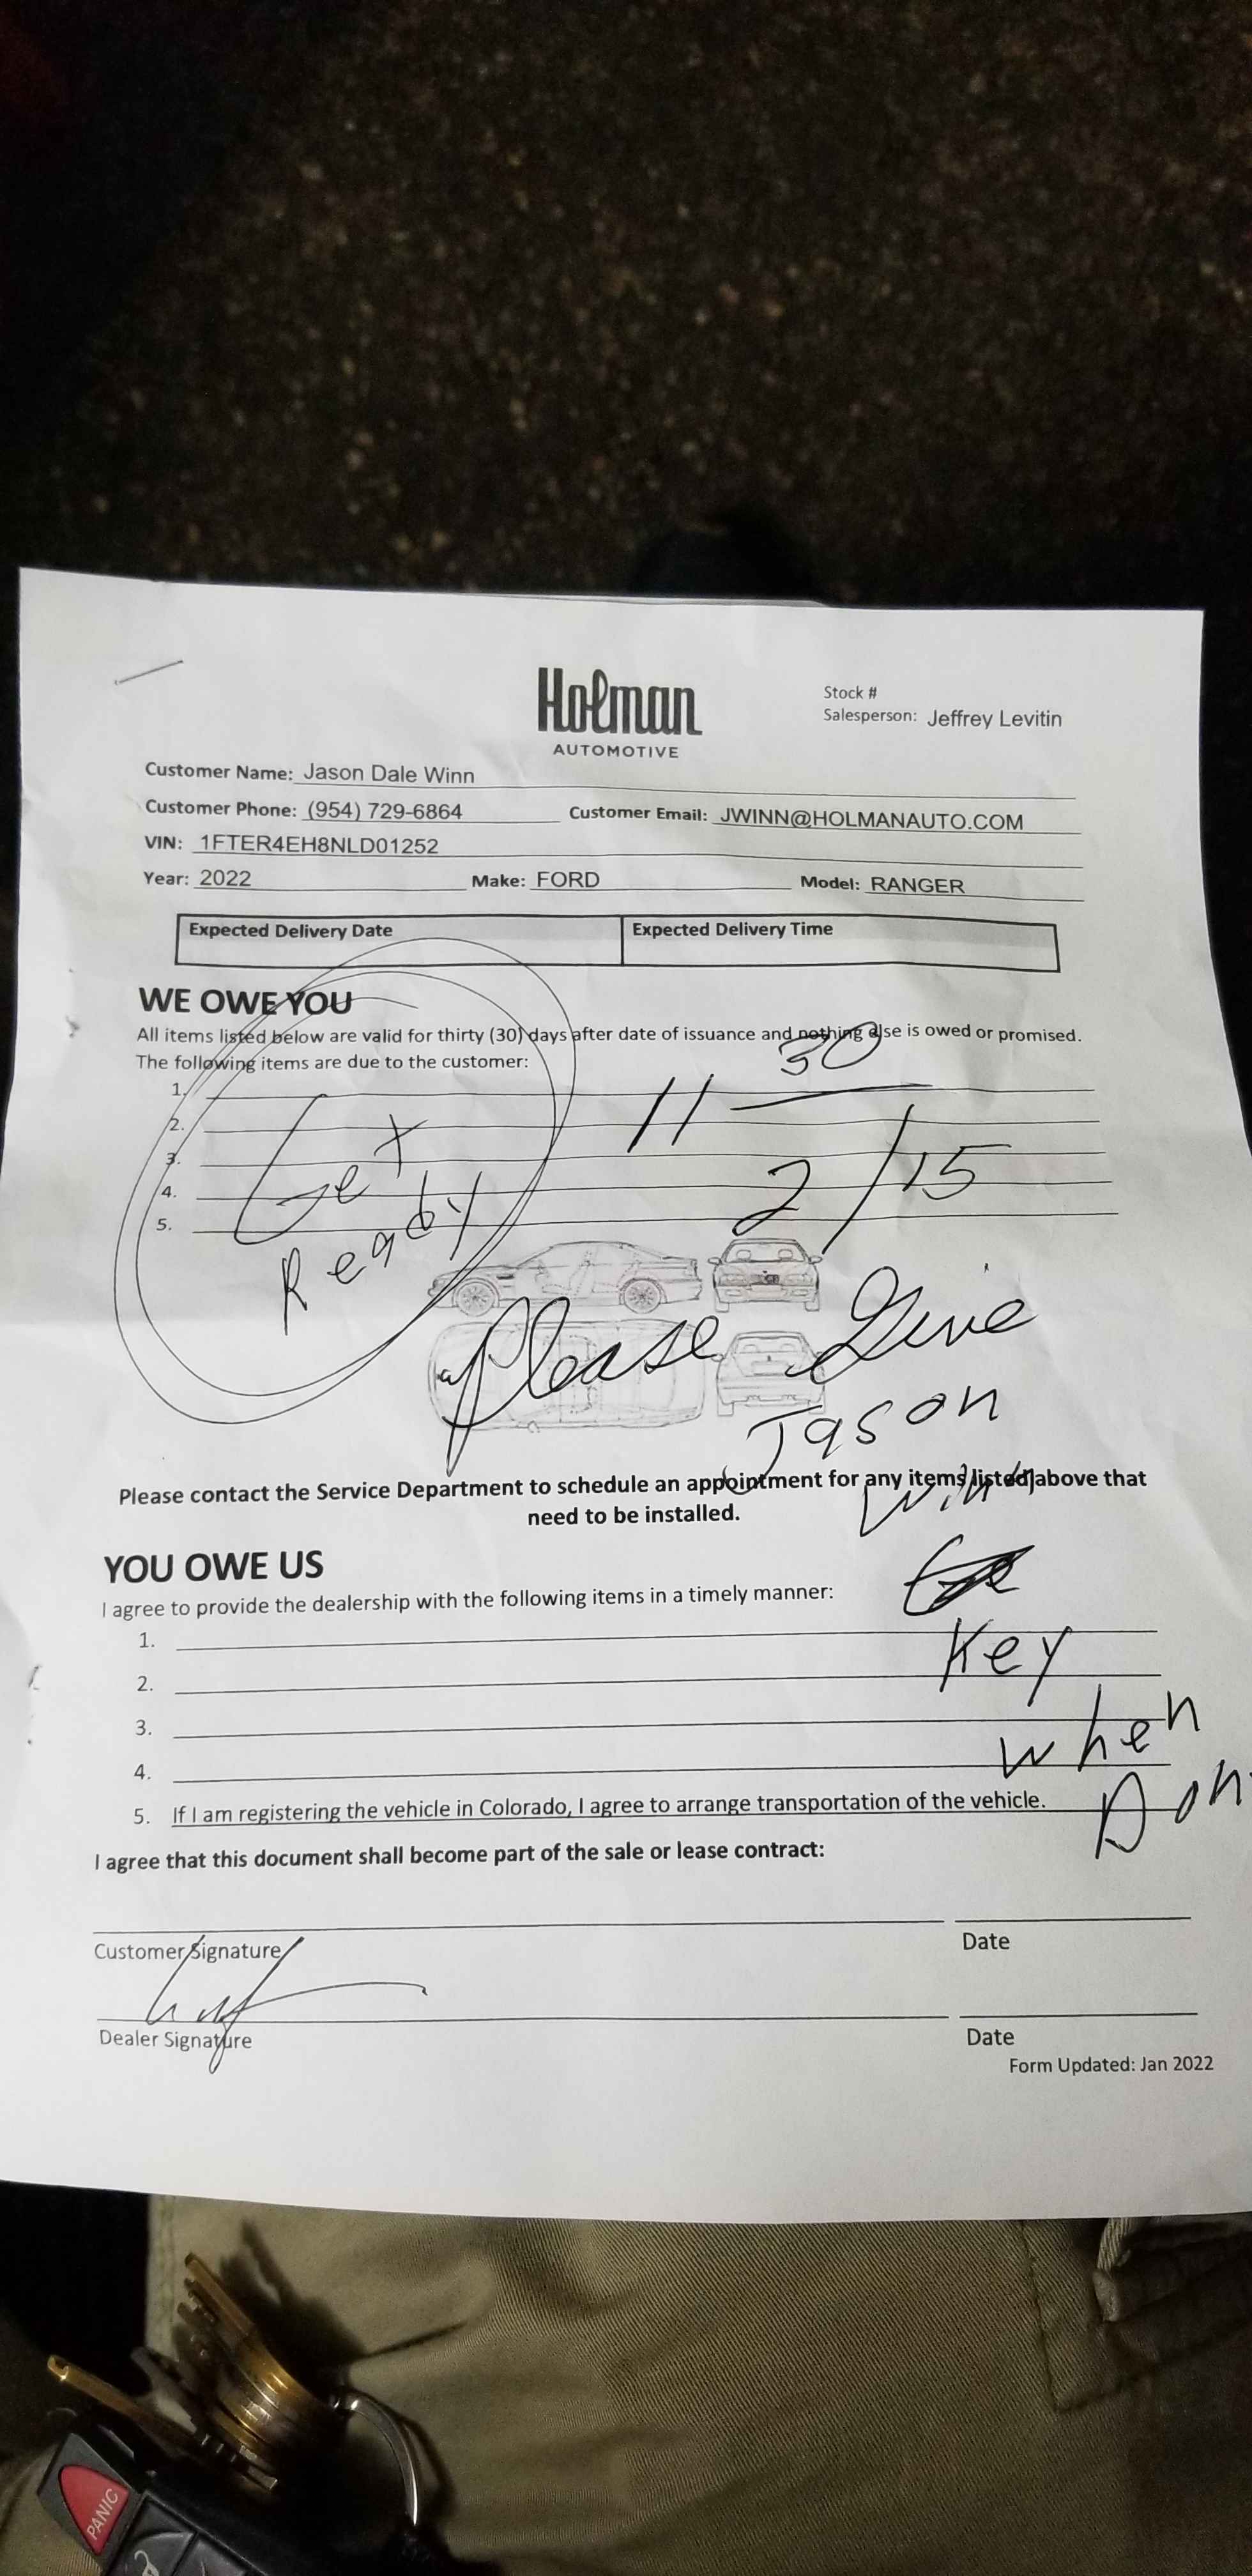 Holman
AUTOMOTIVE
Stock #
Salesperson: Jeffrey Levitin
Customer Name: Jason Dale Winn
Customer Phone: (954) 729-6864 Customer Email: JWINN@HOLMANAUTO.COM
VIN: 1FTER4EH8NLD01252
Year: 2022 Make: FORD Model: RANGER
Expected Delivery Date Expected Delivery Time
WE OWE YOU
All items listed below are valid for thirty (30) days after date of issuance and nothing else is owed or promised.
The following items are due to the customer:
1.
2.
3.
4.
5.
Get
Ready
11 30
2/15
Please Give
Jason
Winn
Key
when
Don
Please contact the Service Department to schedule an appointment for any items listed above that
need to be installed.
YOU OWE US
I agree to provide the dealership with the following items in a timely manner:
1.
2.
3.
4.
5. If I am registering the vehicle in Colorado, I agree to arrange transportation of the vehicle.
I agree that this document shall become part of the sale or lease contract:
Customer Signature
Date
Dealer Signature
Date
Form Updated: Jan 2022
PANIC